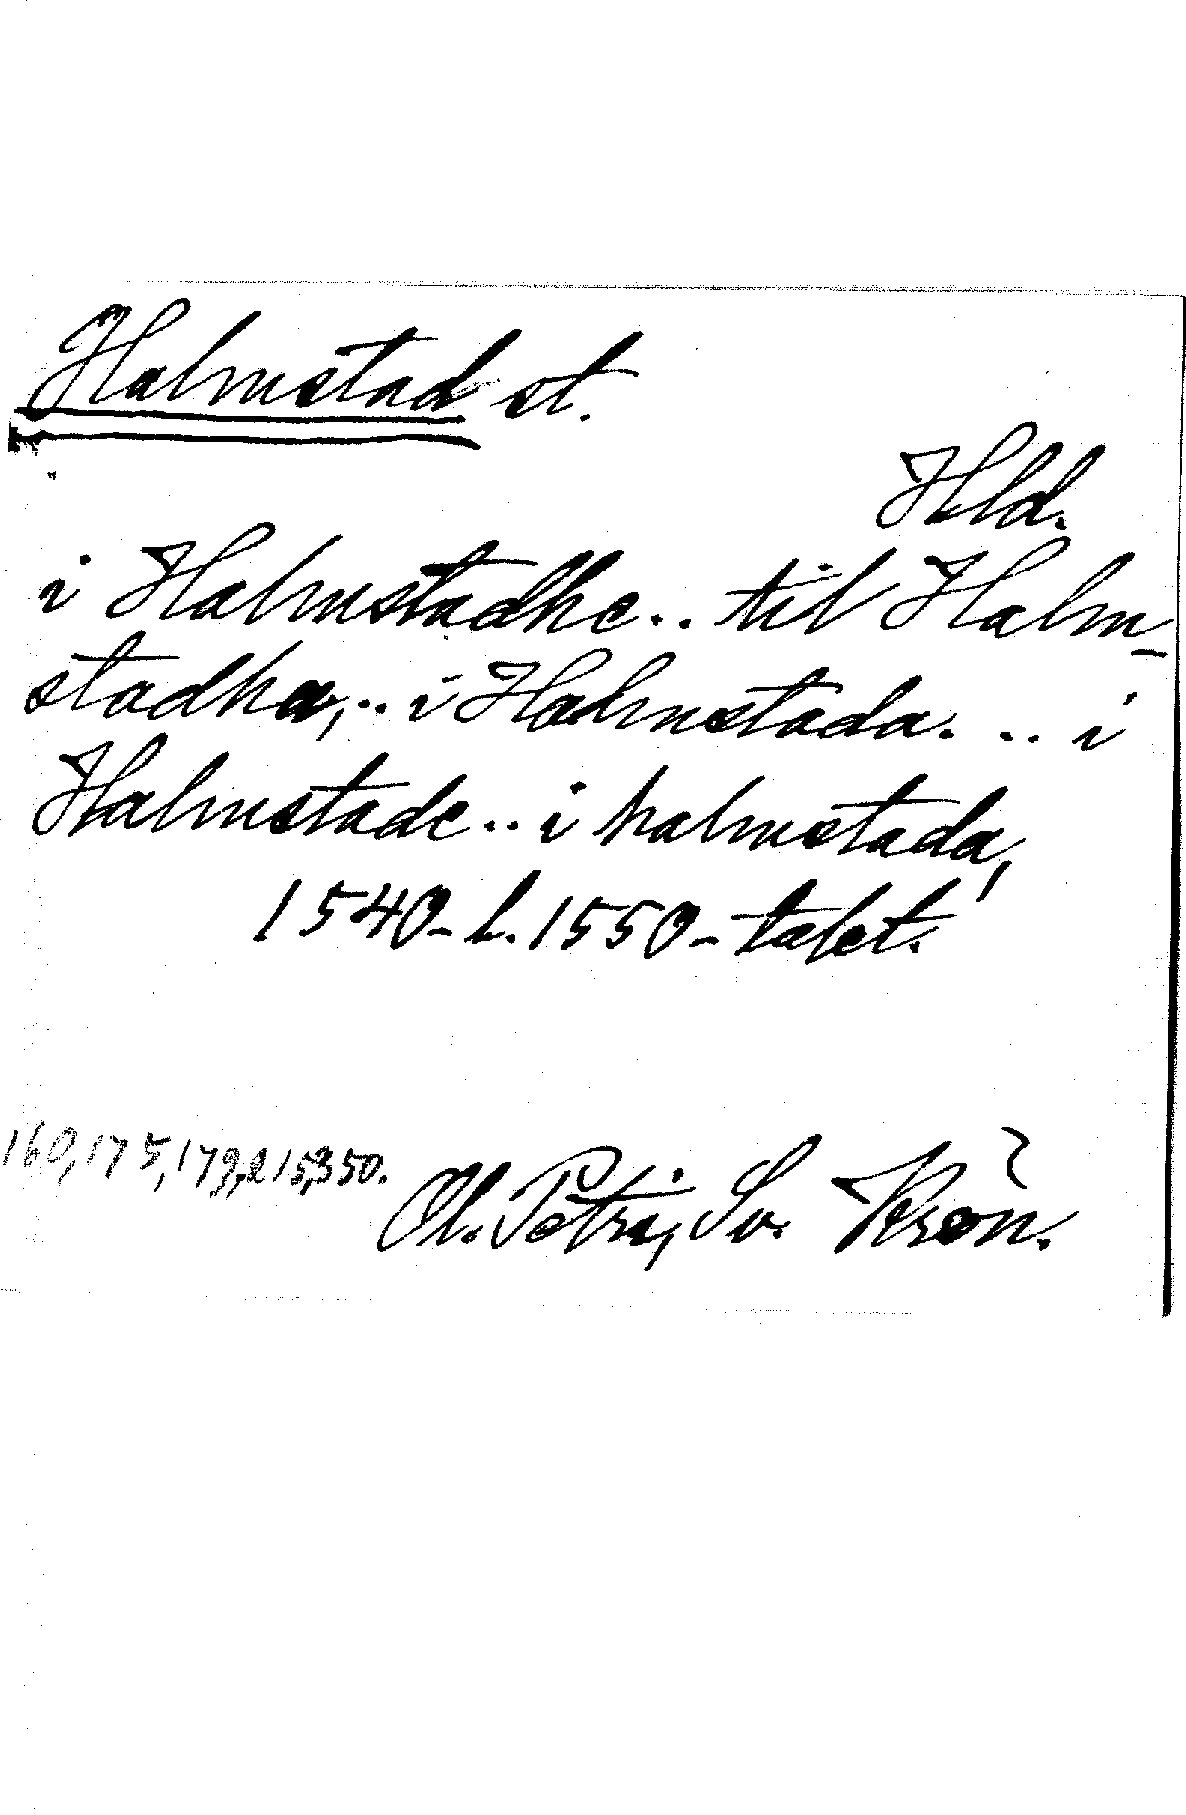 Halmstad st.
Hld.
i Halmstadhe.. til Halm-
stadha,.. i Halmstada. .. i
Halmstade.. i halmstada,
1540- l. 1550-talet.
160, 175, 179, 215, 350.
Ol. Petri, Sv. Krön.